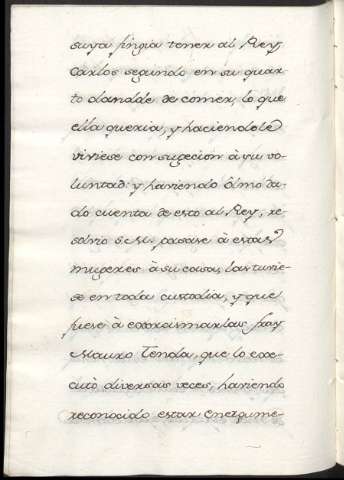 suya fingia tener al Rey
Carlos segundo en su quar-
to dandole de comer, lo que
ella queria, y haciendole
viviese con sugecion à su vo-
luntad: y haviendo Olmo da-
do cuenta de esto al Rey, re-
solvio S. M. pasase à estas
mugeres à su casa, las tuvie-
se en toda custodia, y que
fuese à exorcismarlas fray
Mauro Tenda, que lo exe-
cutò diversas veces, haviendo
reconocido estar Energume-